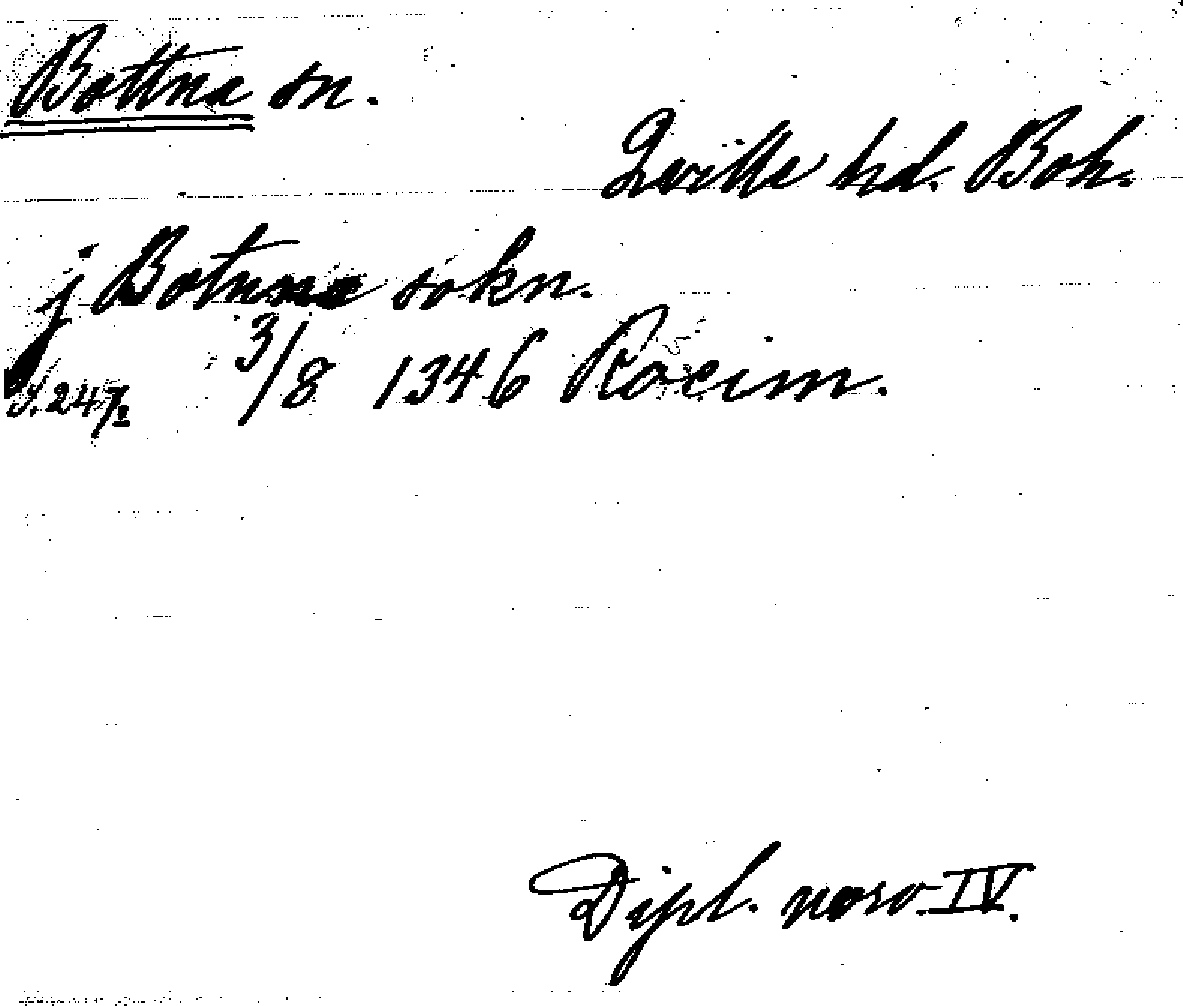 Bottna sn.
Qville hd. Boh.
j Botnne sokn.
S. 247. 3/8 1346 Racim.
Dipl. norv. IV.